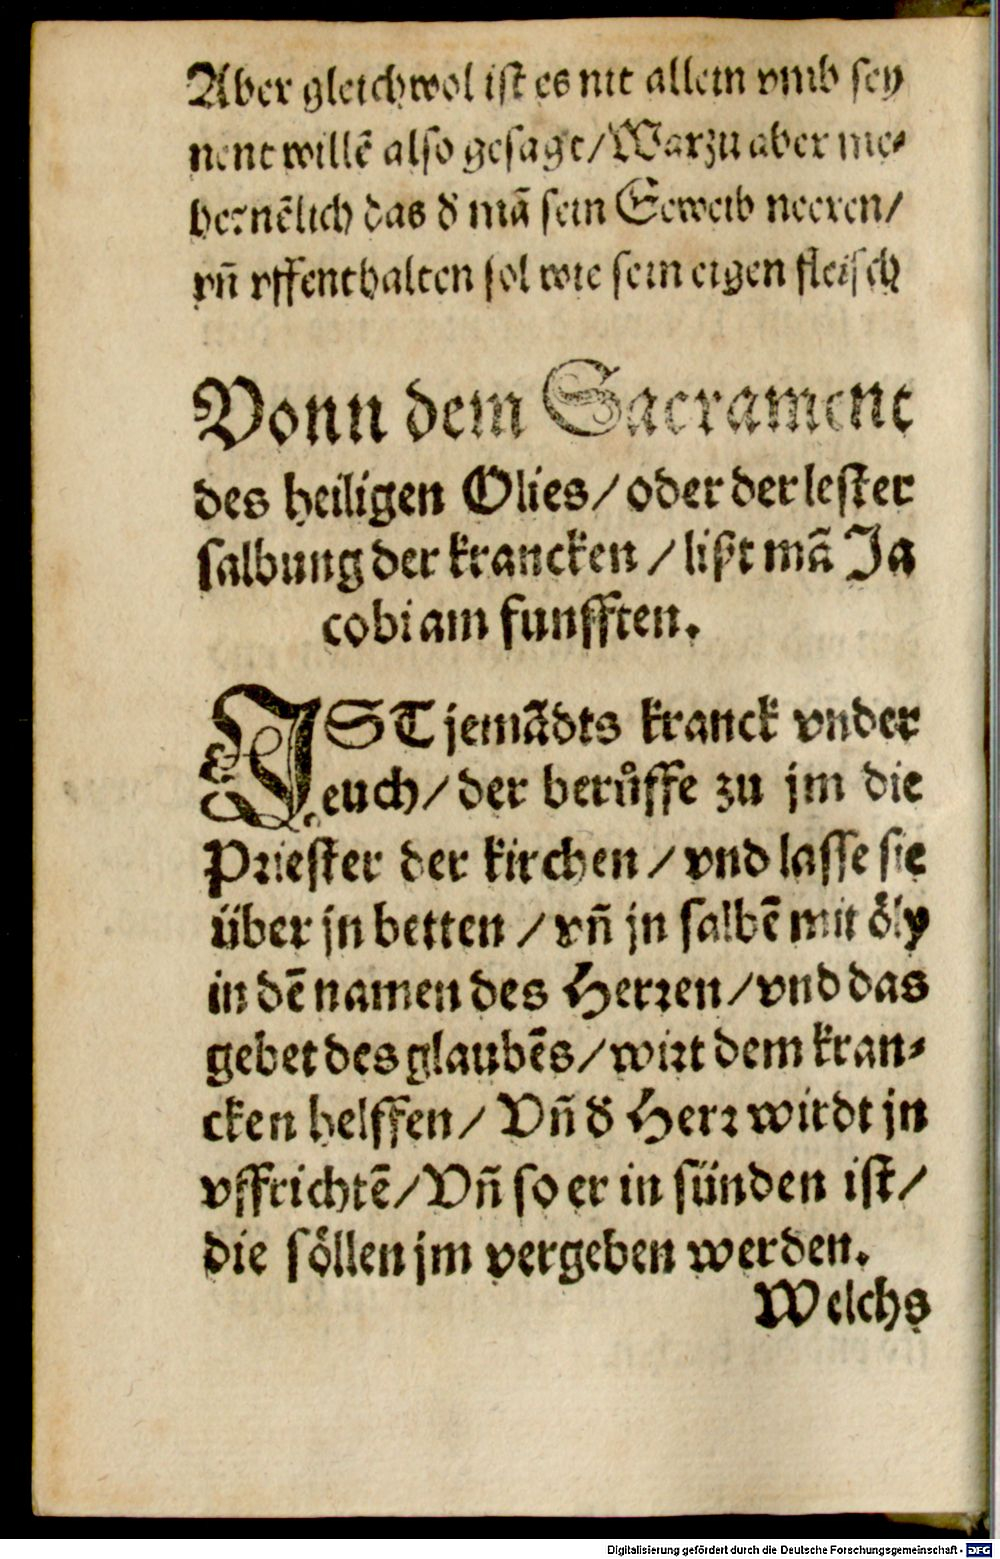 Aber gleichwol ist es nit allein vmb sey
nent willē also gesagt/Warzu aber me⸗
her nēlich das d̄ mā sein Eeweib neeren/
vn̄ vffenthalten sol wie sein eigen fleisch
Vonn dem Sacrament
des heiligen Olies/oder der lester
salbung der krancken/lißt mā Ja
cobi am funfften.
IST jemādts kranck vnder
euch/der berůffe zu jm die
Priester der kirchen/vnd lasse sie
über jn betten/vn̄ jn salbē mit öly
in dē namen des Herren/vnd das
gebet des glaubēs/wirt dem kran⸗
cken helffen/Vn̄ d̄ Herr wirdt jn
vffrichtē/Vn̄ so er in sünden ist/
die söllen jm vergeben werden.
Welchs
Digitalisierung gefördert durch die Deutsche Forschungsgemeinschaft - DFG